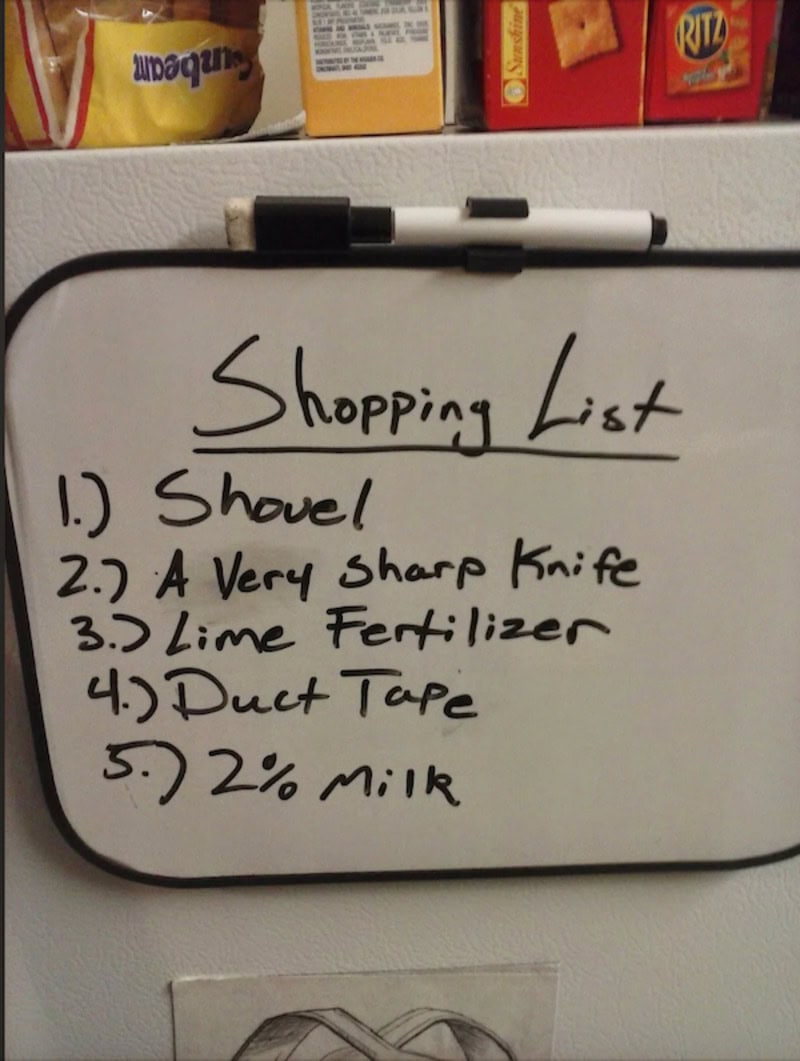 Sunbeam
DISTRIBUTED BY THE KROGER CO.
CINCINNATI, OHIO 45202
Sunshine
RITZ
Shopping List
1.) Shovel
2.) A Very Sharp Knife
3.) Lime Fertilizer
4.) Duct Tape
5.) 2% Milk